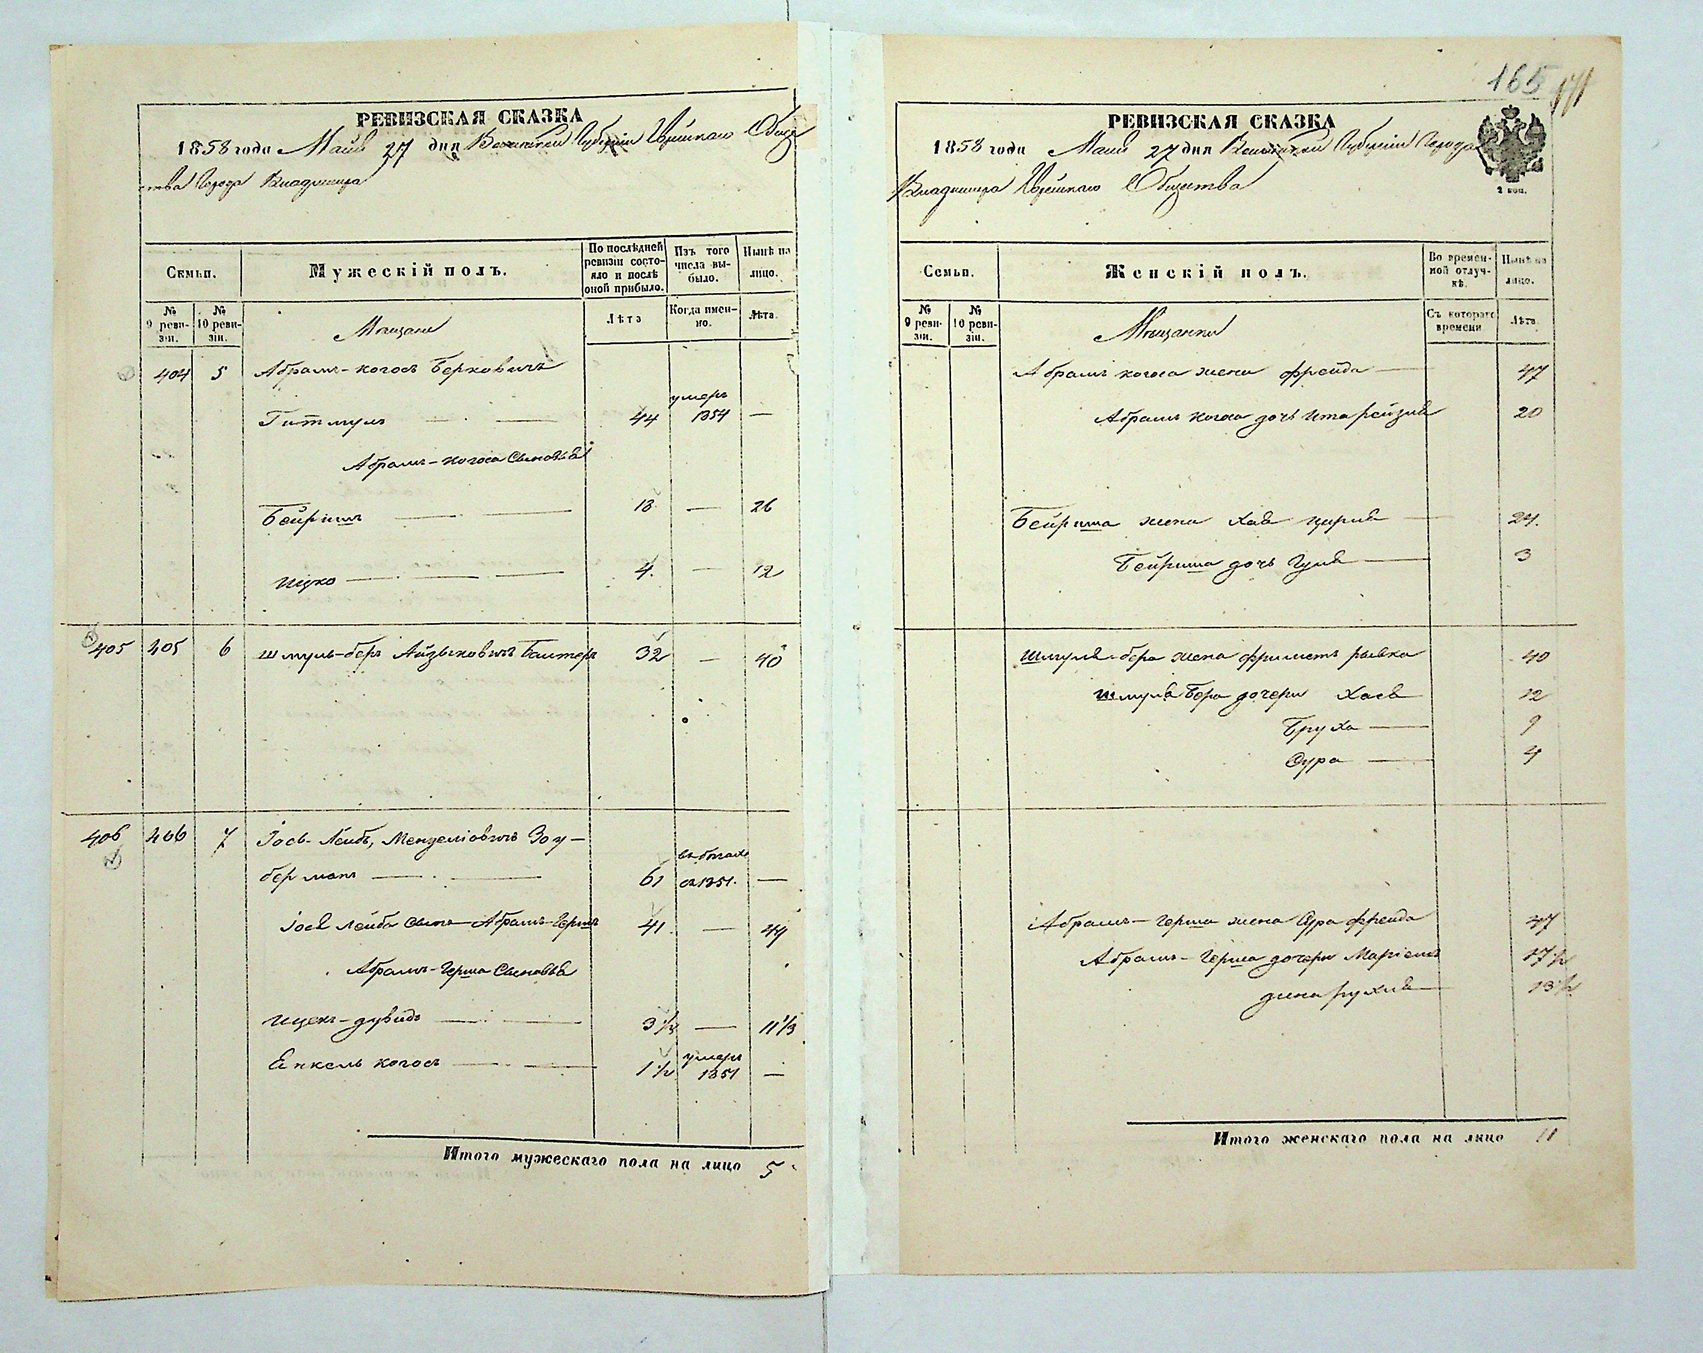 РЕВИЗСКАЯ СКАЗКА
1858 года Маия 27 дня Волынской Губерніи Еврейскаго Общес
тва Города Владимира
Семьи.
Мужескій полъ.
По послѣдней ревизіи состояло и послѣ оной прибыло.
Изъ того числа выбыло.
Нынѣ на лицо.
№ 9 ревизіи.
№ 10 ревизіи.
Мещане
Лѣта
Когда именно.
Лѣта.
404 5 Абрамъ-когосъ Берковичъ
умеръ
44 1854 —
Абрамъ-когоса Сыновья
Бейришъ 18 — 26
Ицко 4. — 12
405 405 6 Шмуль-беръ Айзыковичъ 32 — 40
406 406 7 Іось-Лейбъ,
берманъ 61 1851. —
Іося Лейба сынъ Абрамъ-Гершъ 41 — 49
Абрамъ-Герша Сыновья
Ицекъ-дувидъ 3 1/3 — 11 1/3
когосъ 1 1/2 умеръ 1851 —
Итого мужескаго пола на лицо 5
165
171
РЕВИЗСКАЯ СКАЗКА
1858 года Маия 27 дня Волынской Губерніи Города
Владимира Еврейскаго Общества
2 коп.
Семьи.
Женскій полъ.
Во временной отлучкѣ.
Нынѣ на лицо.
№ 9 ревизіи.
№ 10 ревизіи.
Мещанки
Съ котораго времени
Лѣта
Абрамъ когоса жена фрейда 47
Абрамъ когоса дочь Ита рейзля 20
Бейриша жена Хая 24.
Бейриша дочь 3
Шмуля-бера жена рывка 40
Шмуля Бера дочери Хася 12
Бруха 9
Сура 4
Абрамъ-Герша жена Сура фрейда 47
Абрамъ-Герша дочери Маріемъ 17 1/2
13 1/2
Итого женскаго пола на лицо 11